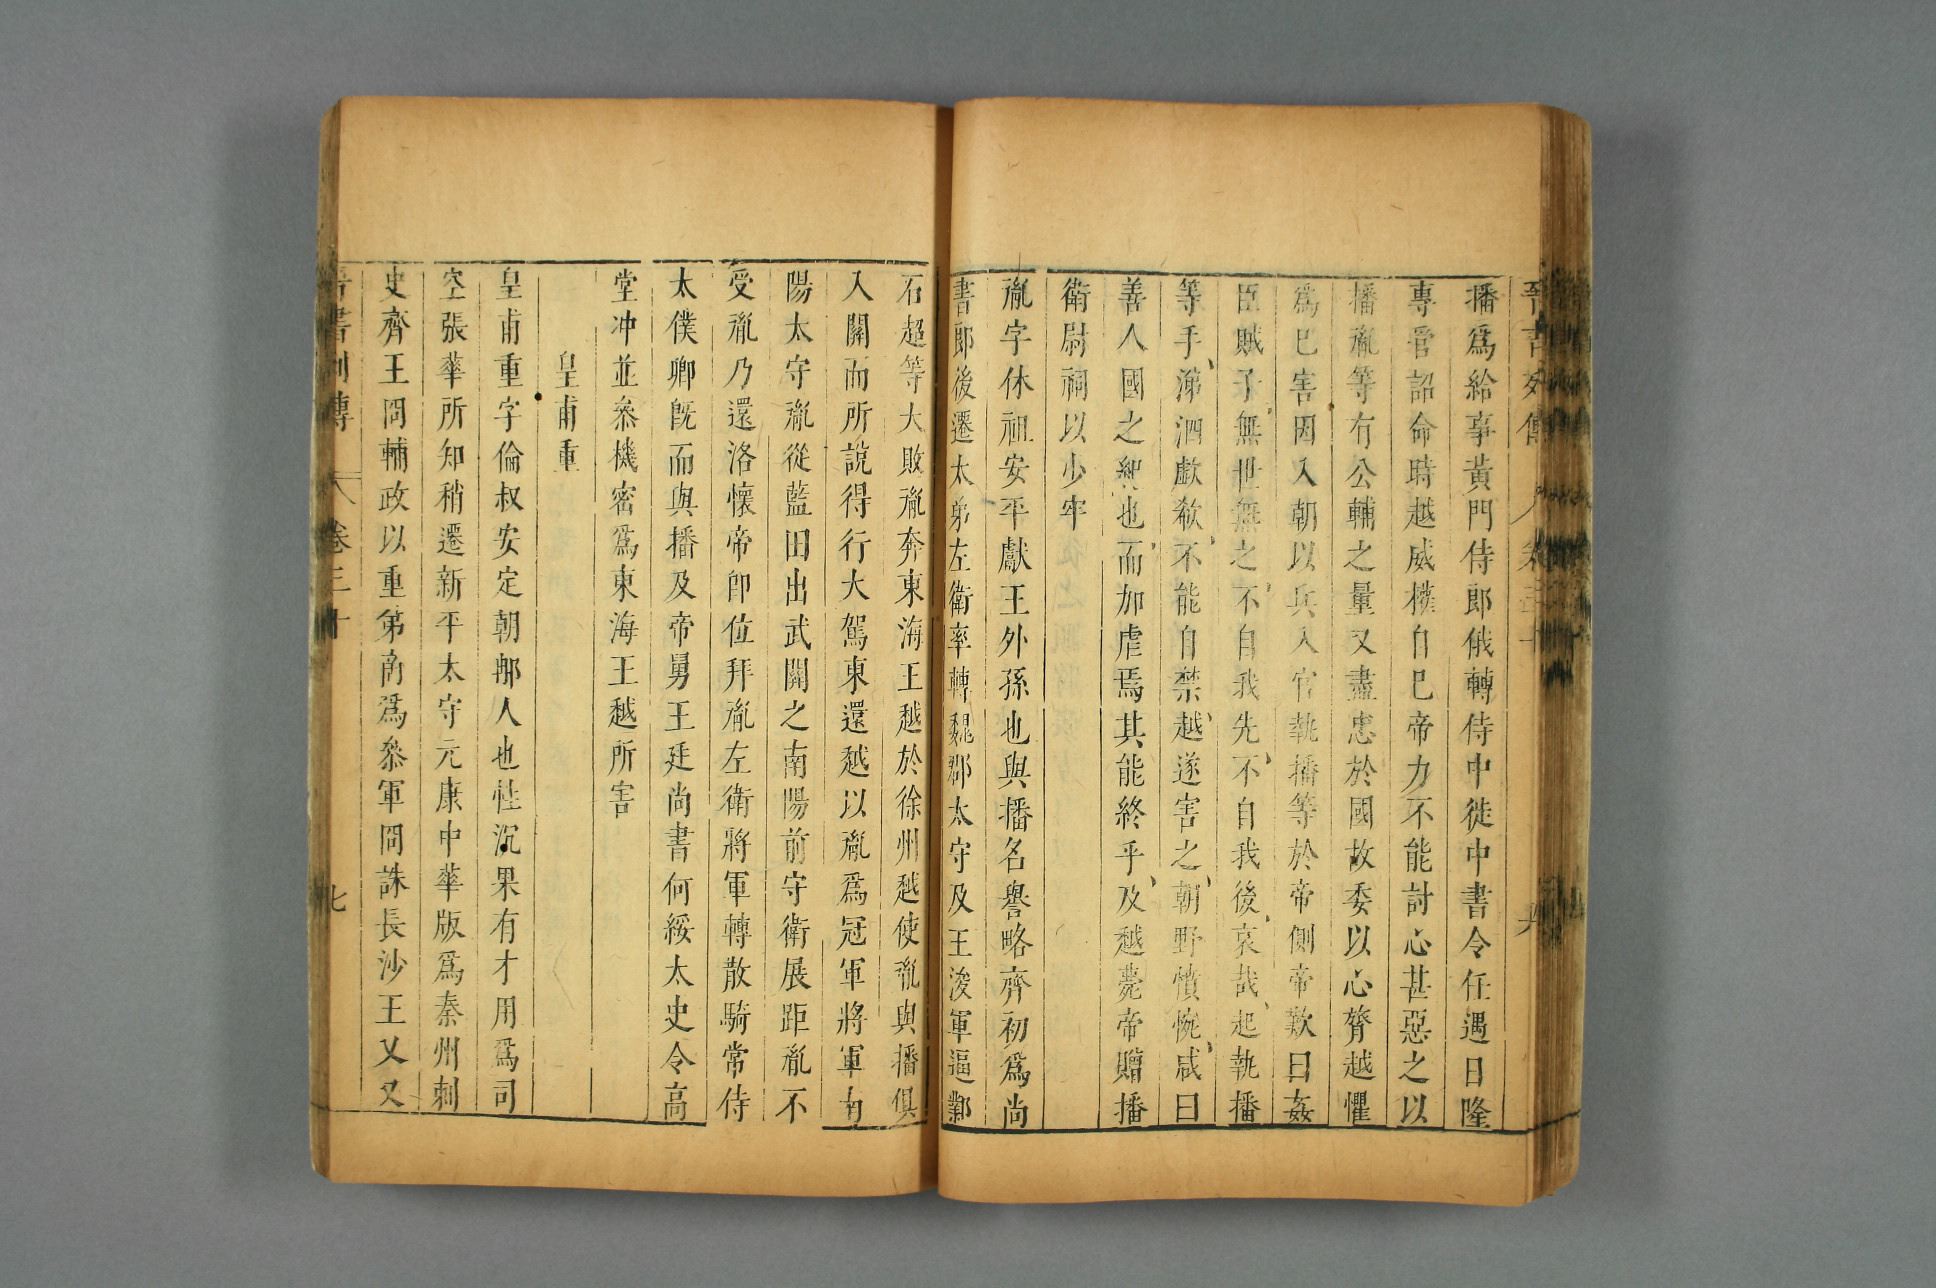 晉書列傳 卷三十 六
播爲給事黃門侍郎俄轉侍中徙中書令任遇日隆
專管詔命時越威權自已帝力不能討心甚惡之以
播胤等有公輔之量又盡忠於國故委以心膂越懼
爲已害因入朝以兵入官執播等於帝側帝歎曰姦
臣賊子無世無之不自我先不自我後哀哉起執播
等手涕泗歔欷不能自禁越遂害之朝野憤惋咸曰
善人國之紀也而加虐焉其能終乎及越薨帝贈播
衛尉祠以少牢
胤字休祖安平獻王外孫也與播名譽略齊初爲尚
書郎後遷太弟左衛率轉魏郡太守及王浚軍逼鄴
石超等大敗胤奔東海王越於徐州越使胤與播俱
入關而所說得行大駕東還越以胤爲冠軍將軍南
陽太守胤從藍田出武關之南陽前守衛展距胤不
受胤乃還洛懷帝卽位拜胤左衛將軍轉散騎常侍
太僕卿旣而與播及帝舅王廷尚書何綏太史令高
堂冲並叅機密爲東海王越所害
皇甫重
皇甫重字倫叔安定朝那人也性沉果有才用爲司
空張華所知稍遷新平太守元康中華版爲秦州刺
史齊王冏輔政以重弟商爲叅軍冏誅長沙王乂又
晉書列傳 卷三十 七